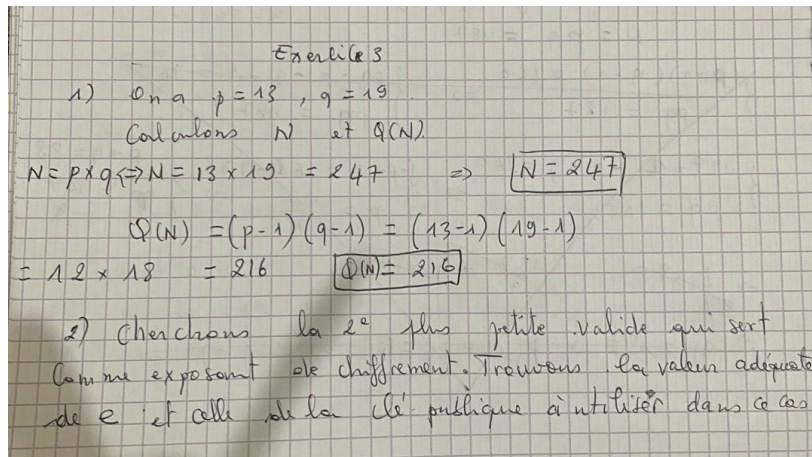 Exercice 3
1) On a p = 13 , q = 19
Calculons N et Q(N).
N = p x q <=> N = 13 x 19 = 247 => N = 247
Q(N) = (p - 1) (q - 1) = (13 - 1) (19 - 1)
= 12 x 18 = 216 Q(N) = 216
2) Cherchons la 2e plus petite valide qui sert
Comme exposant de chiffrement. Trouvons la valeur adéquate
de e et celle de la clé publique à utiliser dans ce cas